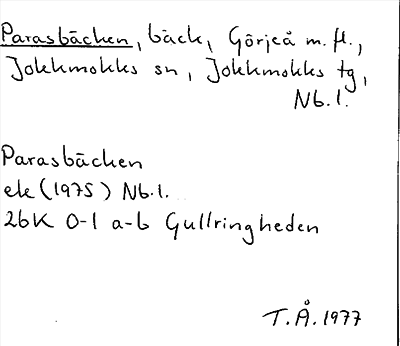 Parasbäcken, bäck, Görjeå m. fl.,
Jokkmokks sn, Jokkmokks tg,
Nb. l.
Parasbäcken
ek (1975) Nb. l.
26K 0-1 a-b Gullringheden
T. Å. 1977